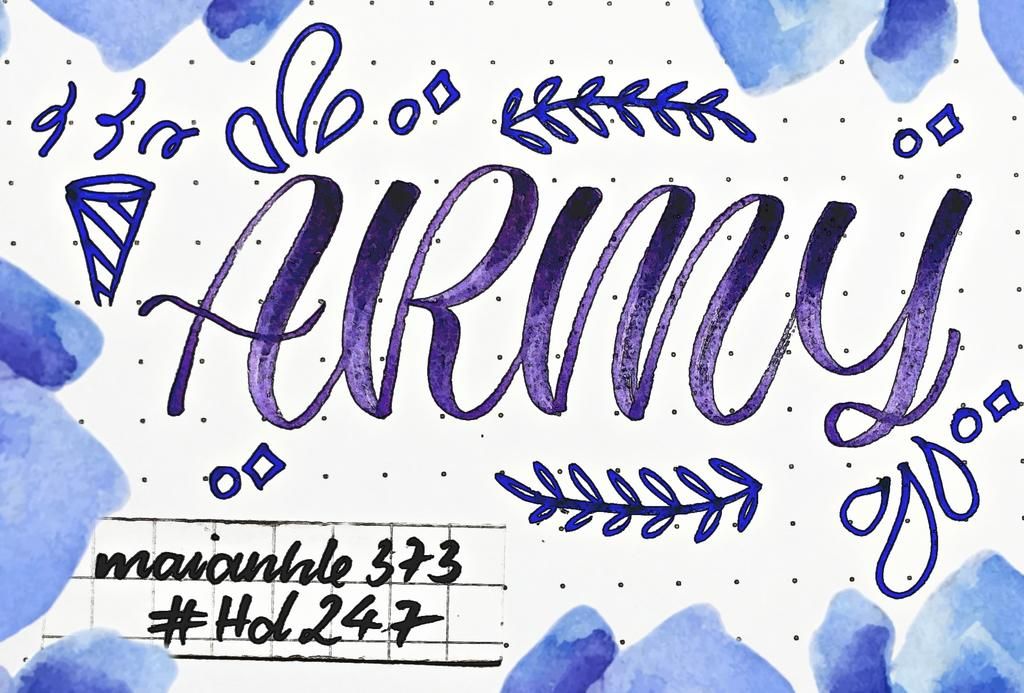 ARMY
maianhle 373
#Hd247